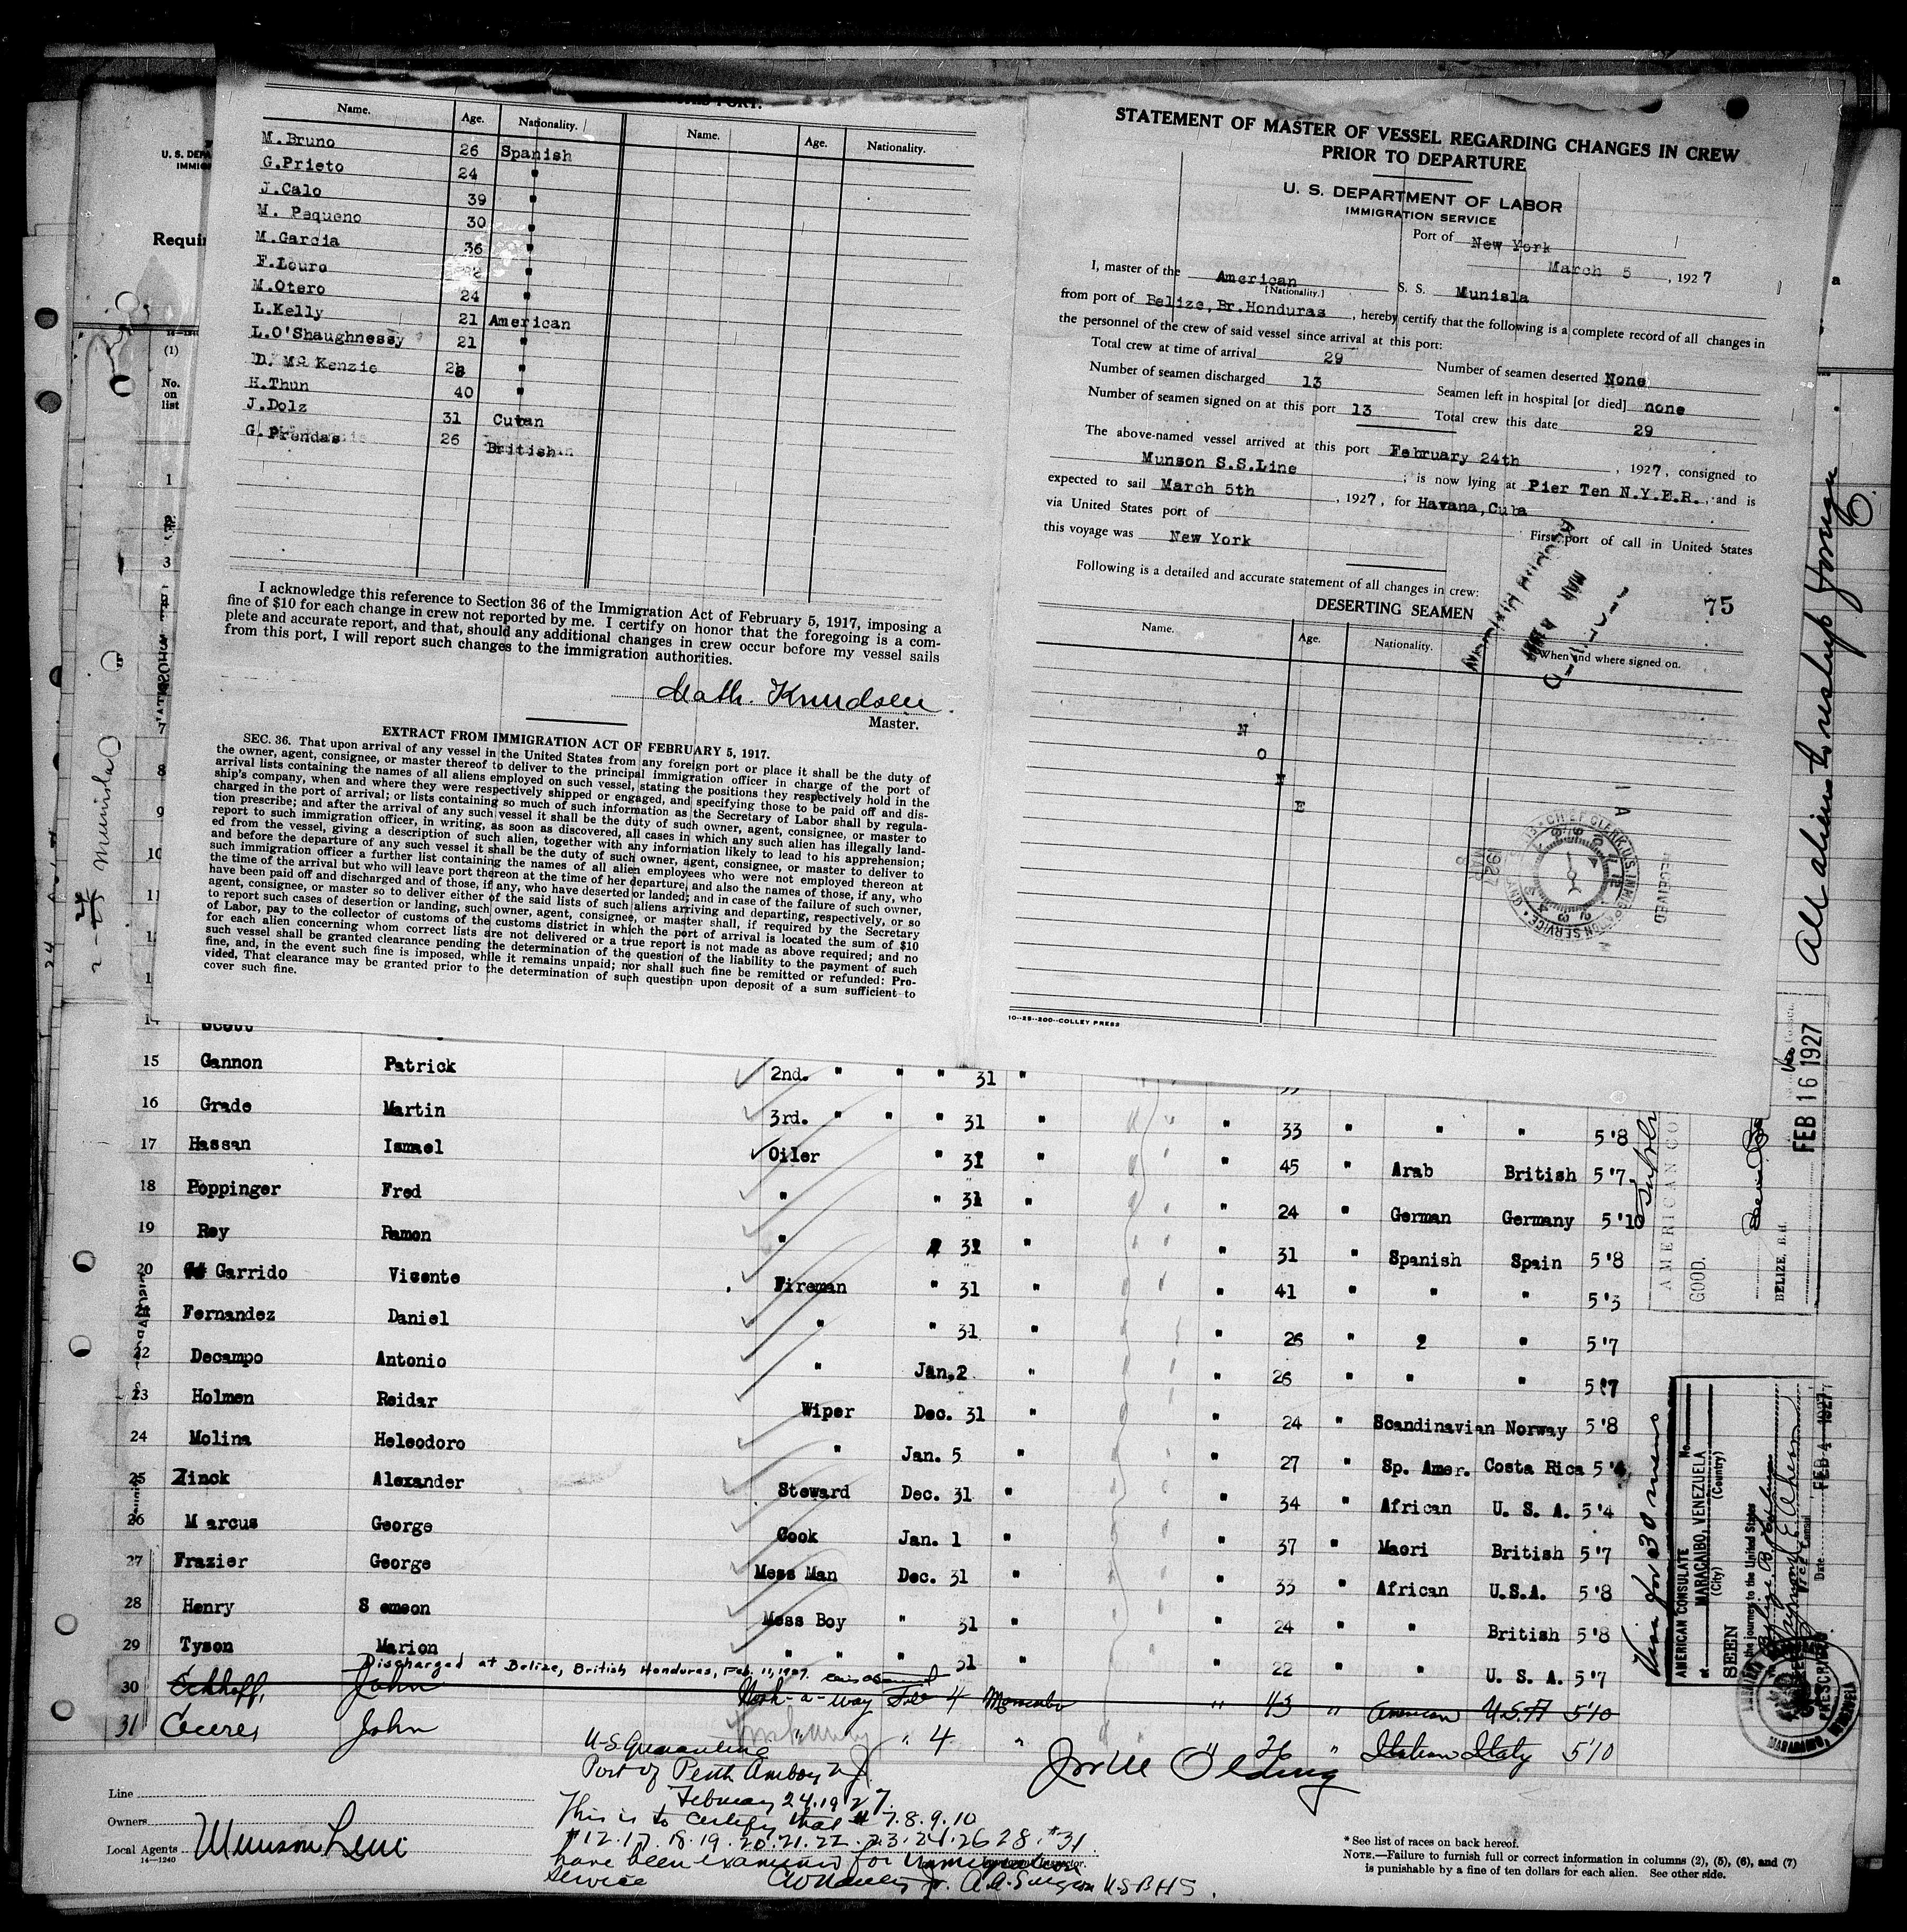 THIS PORT.
Name. Age. Nationality. Name. Age. Nationality.
M.Bruno 26 Spanish
G.Prieto 24 "
J.Calo 39 "
M. Pequeno 30 "
M.Garcia 36 "
F.Louro 32 "
M.Otero 24 "
L.Kelly 21 American
L.O'Shaughnessy 21 "
D. Mc Kenzie 28 "
H.Thun 40 "
J.Dolz 31 Cuban
G.Prendas 26 British
I acknowledge this reference to Section 36 of the Immigration Act of February 5, 1917, imposing a
fine of $10 for each change in crew not reported by me. I certify on honor that the foregoing is a com-
plete and accurate report, and that, should any additional changes in crew occur before my vessel sails
from this port, I will report such changes to the immigration authorities.
Math. Knudsen
Master.
EXTRACT FROM IMMIGRATION ACT OF FEBRUARY 5, 1917.
SEC. 36. That upon arrival of any vessel in the United States from any foreign port or place it shall be the duty of
the owner, agent, consignee, or master thereof to deliver to the principal immigration officer in charge of the port of
arrival lists containing the names of all aliens employed on such vessel, stating the positions they respectively hold in the
ship's company, when and where they were respectively shipped or engaged, and specifying those to be paid off and dis-
charged in the port of arrival; or lists containing so much of such information as the Secretary of Labor shall by regula-
tion prescribe; and after the arrival of any such vessel it shall be the duty of such owner, agent, consignee, or master to
report to such immigration officer, in writing, as soon as discovered, all cases in which any such alien has illegally land-
ed from the vessel, giving a description of such alien, together with any information likely to lead to his apprehension;
and before the departure of any such vessel it shall be the duty of such owner, agent, consignee, or master to deliver to
such immigration officer a further list containing the names of all alien employees who were not employed thereon at
the time of the arrival but who will leave port thereon at the time of her departure, and also the names of those, if any, who
have been paid off and discharged and of those, if any, who have deserted or landed; and in case of the failure of such owner,
agent, consignee, or master so to deliver either of the said lists of such aliens arriving and departing, respectively, or so
to report such cases of desertion or landing, such owner, agent, consignee, or master shall, if required by the Secretary
of Labor, pay to the collector of customs of the customs district in which the port of arrival is located the sum of $10
for each alien concerning whom correct lists are not delivered or a true report is not made as above required; and no
such vessel shall be granted clearance pending the determination of the question of the liability to the payment of such
fine, and, in the event such fine is imposed, while it remains unpaid; nor shall such fine be remitted or refunded: Pro-
vided, That clearance may be granted prior to the determination of such question upon deposit of a sum sufficient to
cover such fine.
STATEMENT OF MASTER OF VESSEL REGARDING CHANGES IN CREW
PRIOR TO DEPARTURE
U. S. DEPARTMENT OF LABOR
IMMIGRATION SERVICE
Port of New York
March 5, 1927
I, master of the American S. S. Munisla
[Nationality.]
from port of Belize,Br.Honduras, hereby certify that the following is a complete record of all changes in
the personnel of the crew of said vessel since arrival at this port:
Total crew at time of arrival 29 Number of seamen deserted None
Number of seamen discharged 13 Seamen left in hospital [or died] none
Number of seamen signed on at this port 13 Total crew this date 29
The above-named vessel arrived at this port February 24th, 1927, consigned to
Munson S.S.Line, is now lying at Pier Ten N.Y.E.R., and is
expected to sail March 5th, 1927, for Havana,Cuba
via United States port of First port of call in United States
this voyage was New York
Following is a detailed and accurate statement of all changes in crew:
75
DESERTING SEAMEN
Name. Age. Nationality. When and where signed on.
N
O
N
E
RECEIVED
1927 MAR 8
10--25--200--COLLEY PRESS
U. S. DEPA
IMMIG
Requir
(1)
No.
on
list
1
3
7
8
9
10
11
14 Scott
15 Gannon Patrick 2nd. " " " 31 "
16 Grade Martin 3rd. " " " 31 " " 33 " " " 5'8
17 Hassan Ismael Oiler " 31 " " 45 " Arab British 5'7
18 Poppinger Fred " " 31 " 24 " German Germany 5'10
19 Rey Ramon " 31 " " 31 " Spanish Spain 5'8
20 Garrido Vicente Fireman " 31 " " 41 " " " 5'3
21 Fernandez Daniel " " 31 " " 26 " 2 " 5'7
22 Decampo Antonio " Jan.2 " " 26 " " " 5'7
23 Holmen Reidar Wiper Dec. 31 " " 24 " Scandinavian Norway 5'8
24 Molina Heleodoro " Jan. 5 " " 27 " Sp. Amer. Costa Rica 5'4
25 Zinck Alexander Steward Dec. 31 " " 34 " African U. S. A. 5'4
26 Marcus George Cook Jan. 1 " " 37 " Maori British 5'7
27 Frazier George Mess Man Dec. 31 " " 33 " African U.S.A. 5'8
28 Henry Semeon Mess Boy " 31 " " 24 " " British 5'8
29 Tyson Marion " " " 31 " " 22 " " U. S. A. 5'7
Discharged at Belize, British Honduras, Feb. 11, 1927.
30 Eckhoff, John Work-a-way Feb 4 Maracaibo " 43 " American U.S.A 5'10
31 Caceres John " 4 " " 26 " Italian Italy 5'10
U-S Quarantine
Port of Perth Amboy N J.
February 24. 1927.
This is to certify that # 7.8.9.10
#12.17.18.19.20.21.22.23.24.26 28.#31
have been examined for Immigration
Service
A.A. Surgeon U.S.P.H.S.
Line
Owners
Local Agents Munson Line
14-1240
* See list of races on back hereof.
NOTE.—Failure to furnish full or correct information in columns (2), (5), (6), and (7)
is punishable by a fine of ten dollars for each alien. See other side.
All aliens to reship foreign
FEB 16 1927
AMERICAN CO
GOOD.
BELIZE, B.H.
AMERICAN CONSULATE No.
at MARACAIBO, VENEZUELA
(City) (Country)
SEEN
for the journey to the United States
Vice Consul
Date FEB 4 1927
MARACAIBO, VENEZUELA
2-25 Munisla
24